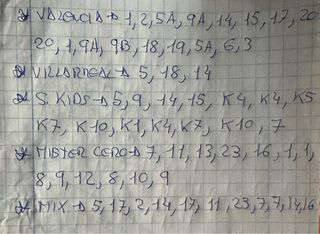 * VALENCIA → 1, 2, 5A, 9A, 14, 15, 17, 20
20, 1, 9A, 9B, 18, 19, 5A, 6, 3
* VILLARREAL → 5, 18, 14
* S. KIDS → 5, 9, 14, 15, K4, K4, K5
K7, K10, K1, K4, K7, K10, 7
* MISTER CERO → 7, 11, 13, 23, 16, 1, 1,
8, 9, 12, 8, 10, 9
* MIX → 5, 17, 2, 14, 17, 11, 23, 7, 7, 14, 16